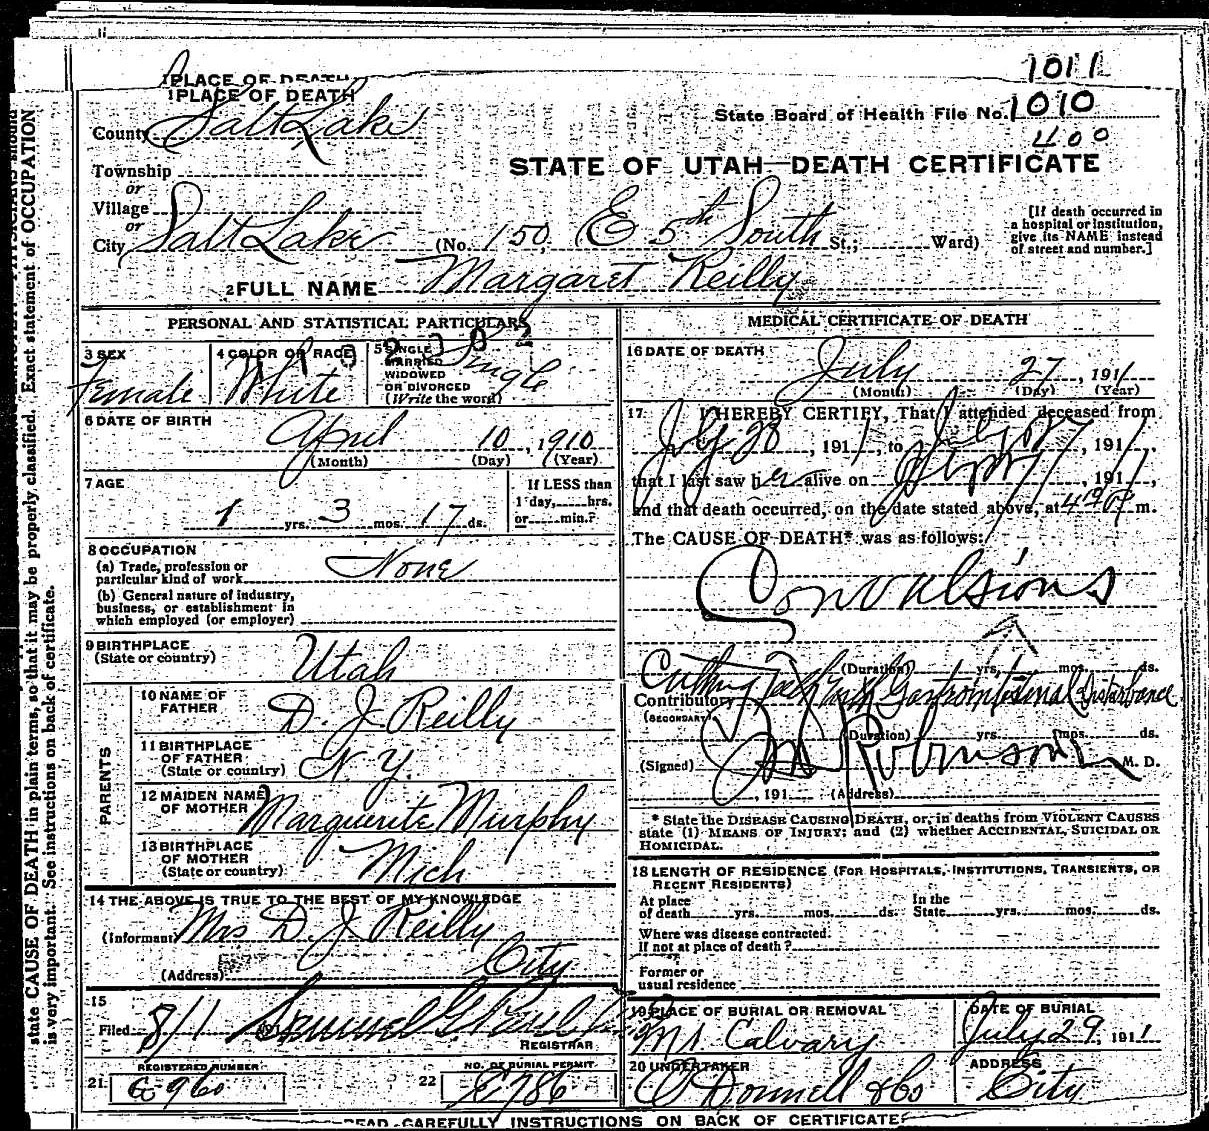 1011
1PLACE OF DEATH
1PLACE OF DEATH
State Board of Health File No. 1010
County Salt Lake
400
STATE OF UTAH—DEATH CERTIFICATE
Township
or
Village
or
City Salt Lake (No. 150 E 5th South St.; Ward)
[If death occurred in
a hospital or institution,
give its NAME instead
of street and number.]
2 FULL NAME Margaret Reilly
PERSONAL AND STATISTICAL PARTICULARS
3 SEX
Female
4 COLOR OR RACE
White
5 SINGLE
MARRIED
WIDOWED
OR DIVORCED
(Write the word)
Single
6 DATE OF BIRTH
April 10, 1910
(Month) (Day) (Year)
7 AGE
1 yrs. 3 mos. 17 ds.
If LESS than
1 day, hrs.
or min.?
8 OCCUPATION
(a) Trade, profession or
particular kind of work None
(b) General nature of industry,
business, or establishment in
which employed (or employer)
9 BIRTHPLACE
(State or country) Utah
PARENTS
10 NAME OF
FATHER D. J. Reilly
11 BIRTHPLACE
OF FATHER
(State or country) N. Y.
12 MAIDEN NAME
OF MOTHER Marguerite Murphy
13 BIRTHPLACE
OF MOTHER
(State or country) Mich
14 THE ABOVE IS TRUE TO THE BEST OF MY KNOWLEDGE
(Informant) Mrs D. J. Reilly
(Address) City
15
Filed 8/1 191 Samuel G.
REGISTRAR
REGISTERED NUMBER
21
NO. OF BURIAL PERMIT
22
MEDICAL CERTIFICATE OF DEATH
16 DATE OF DEATH
July 27, 1911
(Month) (Day) (Year)
17 I HEREBY CERTIFY, That I attended deceased from
, 1911, to July 27, 1911,
that I last saw her alive on , 1911,
and that death occurred, on the date stated above, at m.
The CAUSE OF DEATH* was as follows:
Convulsions
(Duration) yrs. mos. ds.
Contributory Cutting Teeth with Gastrointestinal Disturbance
(SECONDARY)
(Duration) yrs. mos. ds.
(Signed) Robinson M. D.
, 191 (Address)
* State the DISEASE CAUSING DEATH, or, in deaths from VIOLENT CAUSES
state (1) MEANS OF INJURY; and (2) whether ACCIDENTAL, SUICIDAL OR
HOMICIDAL.
18 LENGTH OF RESIDENCE (FOR HOSPITALS, INSTITUTIONS, TRANSIENTS, OR
RECENT RESIDENTS)
At place
of death yrs. mos. ds.
In the
State yrs. mos. ds.
Where was disease contracted.
If not at place of death?
Former or
usual residence
19 PLACE OF BURIAL OR REMOVAL
Mt. Calvary
DATE OF BURIAL
July 29, 1911
20 UNDERTAKER
O'Donnell & Co
ADDRESS
City
READ CAREFULLY INSTRUCTIONS ON BACK OF CERTIFICATE
state CAUSE OF DEATH in plain terms, so that it may be properly classified. Exact statement of OCCUPATION
is very important. See instructions on back of certificate.